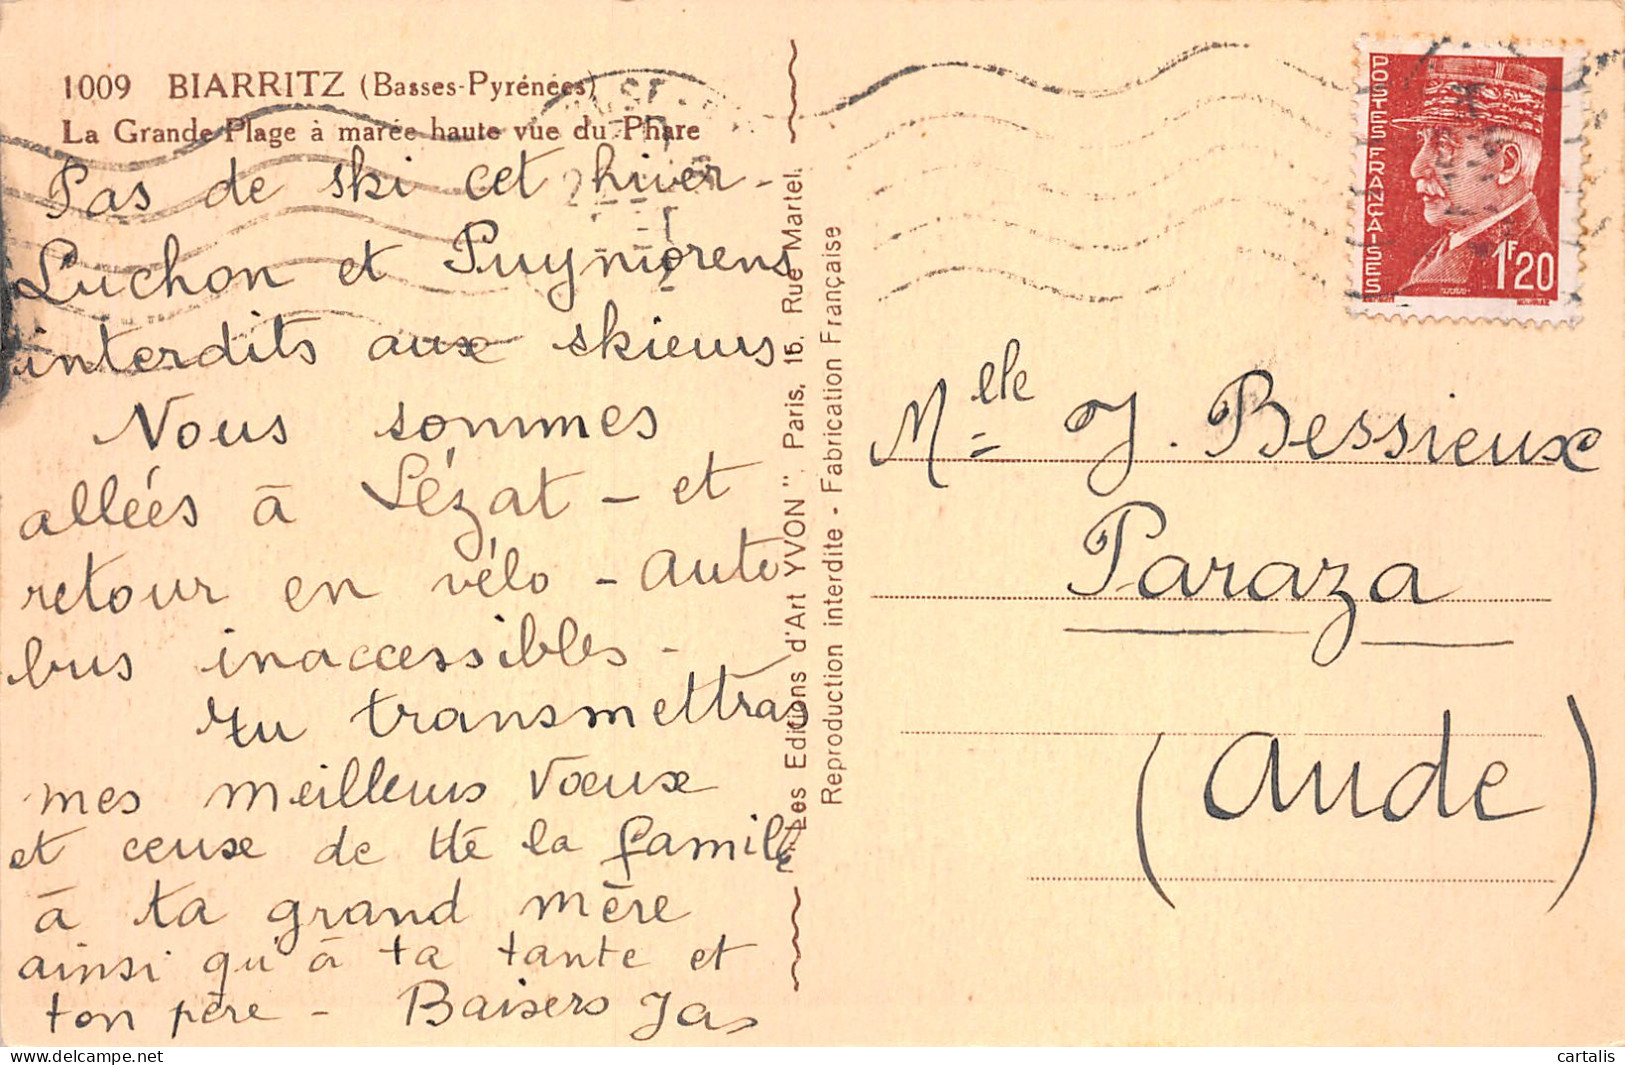 1009 BIARRITZ (Basses-Pyrénées)
La Grande Plage à marée haute vue du Phare
Pas de ski cet hiver -
Luchon et Puymorens
interdits aux skieurs
Nous sommes
allées à Lézat - et
retour en vélo - Auto
bus inaccessibles -
Tu transmettras
mes meilleurs vœux
et ceux de tte la famille
à ta grand mère
ainsi qu'à ta tante et
ton père - Baisers Jas
Les Editions d'Art "YVON" Paris, 15, Rue Martel.
Reproduction interdite - Fabrication Française
POSTES FRANÇAISES
1F20
Melle J. Bessieux
Paraza
(Aude)
delcampe.net
cartalis